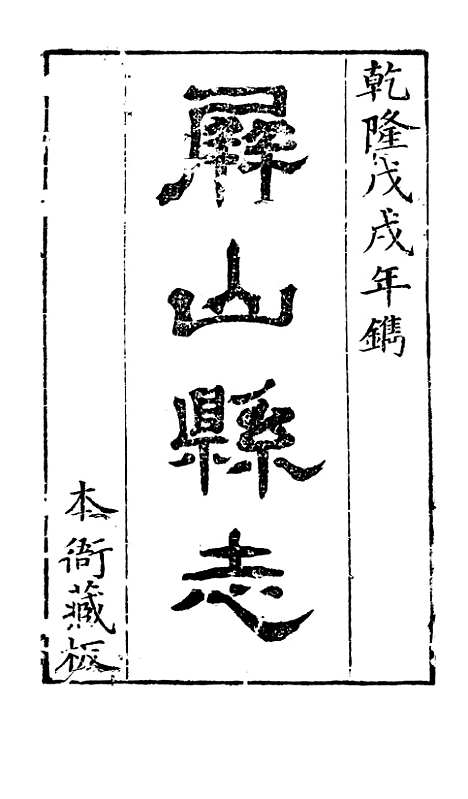 乾隆戊戌年鐫
屏山縣志
本衙藏板